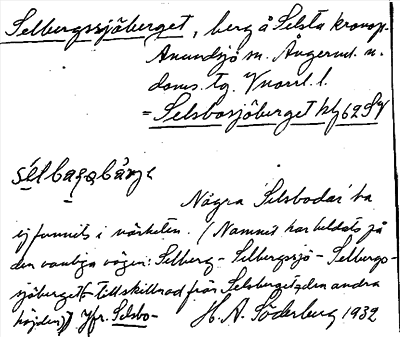 Selbergssjöberget, berg å Selsta kronop.
Anundsjö sn. Ångerml. n.
doms. tg. Vnorrl. l.
= Selsbosjöberget kbl 62 SV
sélbaɡabärjə
Några Selsbodar ha
ej funnits i närheten. (Namnet har bildats på
den vanliga vägen: Selberg - Selbergssjö - Selbergs-
sjöberget - till skillnad från Selsberget, den andra
höjden)) Jfr. Selsbo-
H. A. Söderberg 1932